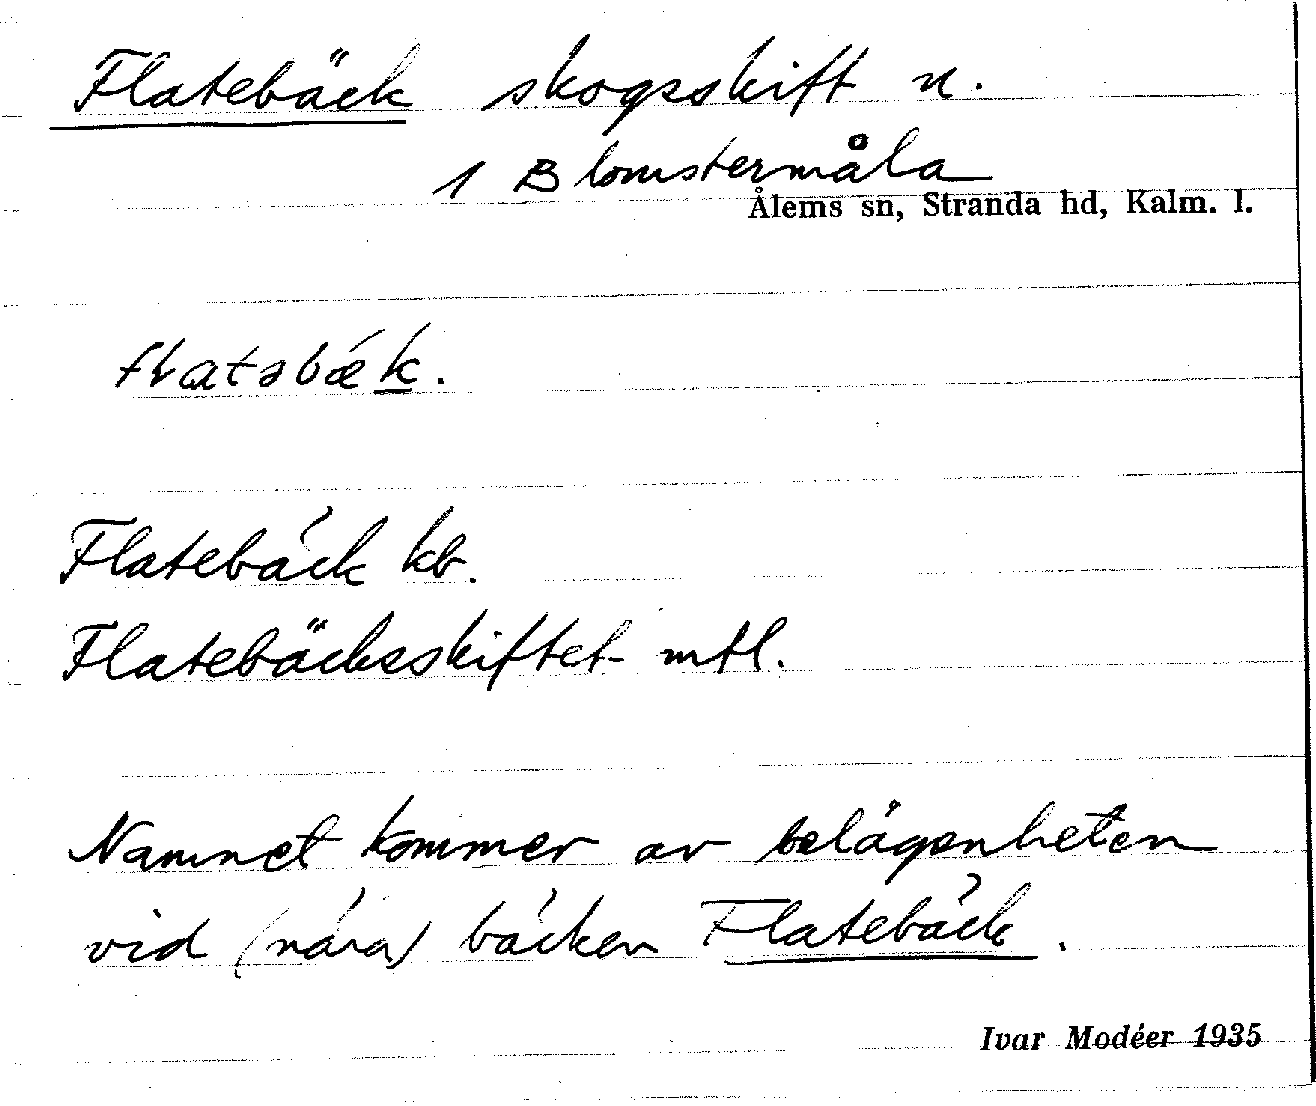 Flatebäck skogsskift n.
1 Blomstermåla
Ålems sn, Stranda hd, Kalm. l.
flatəbæk.
Flatebäck kb.
Flatebäcksskiftet mtl.
Namnet kommer av belägenheten
vid (nära) bäcken Flatebäck.
Ivar Modéer 1935